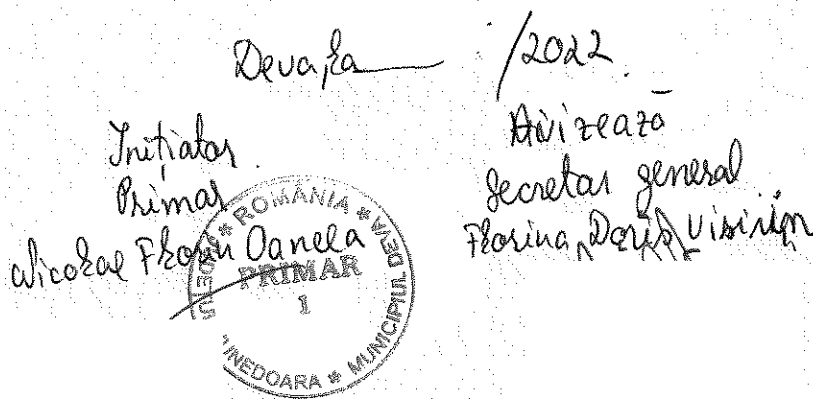 Deva, la /2022
Inițiator
Primar
Nicolae Florin Oancea
Avizează
Secretar general
Florina Doris Visirin
ROMÂNIA * MUNICIPIUL DEVA * JUDEȚUL HUNEDOARA *
PRIMAR
1